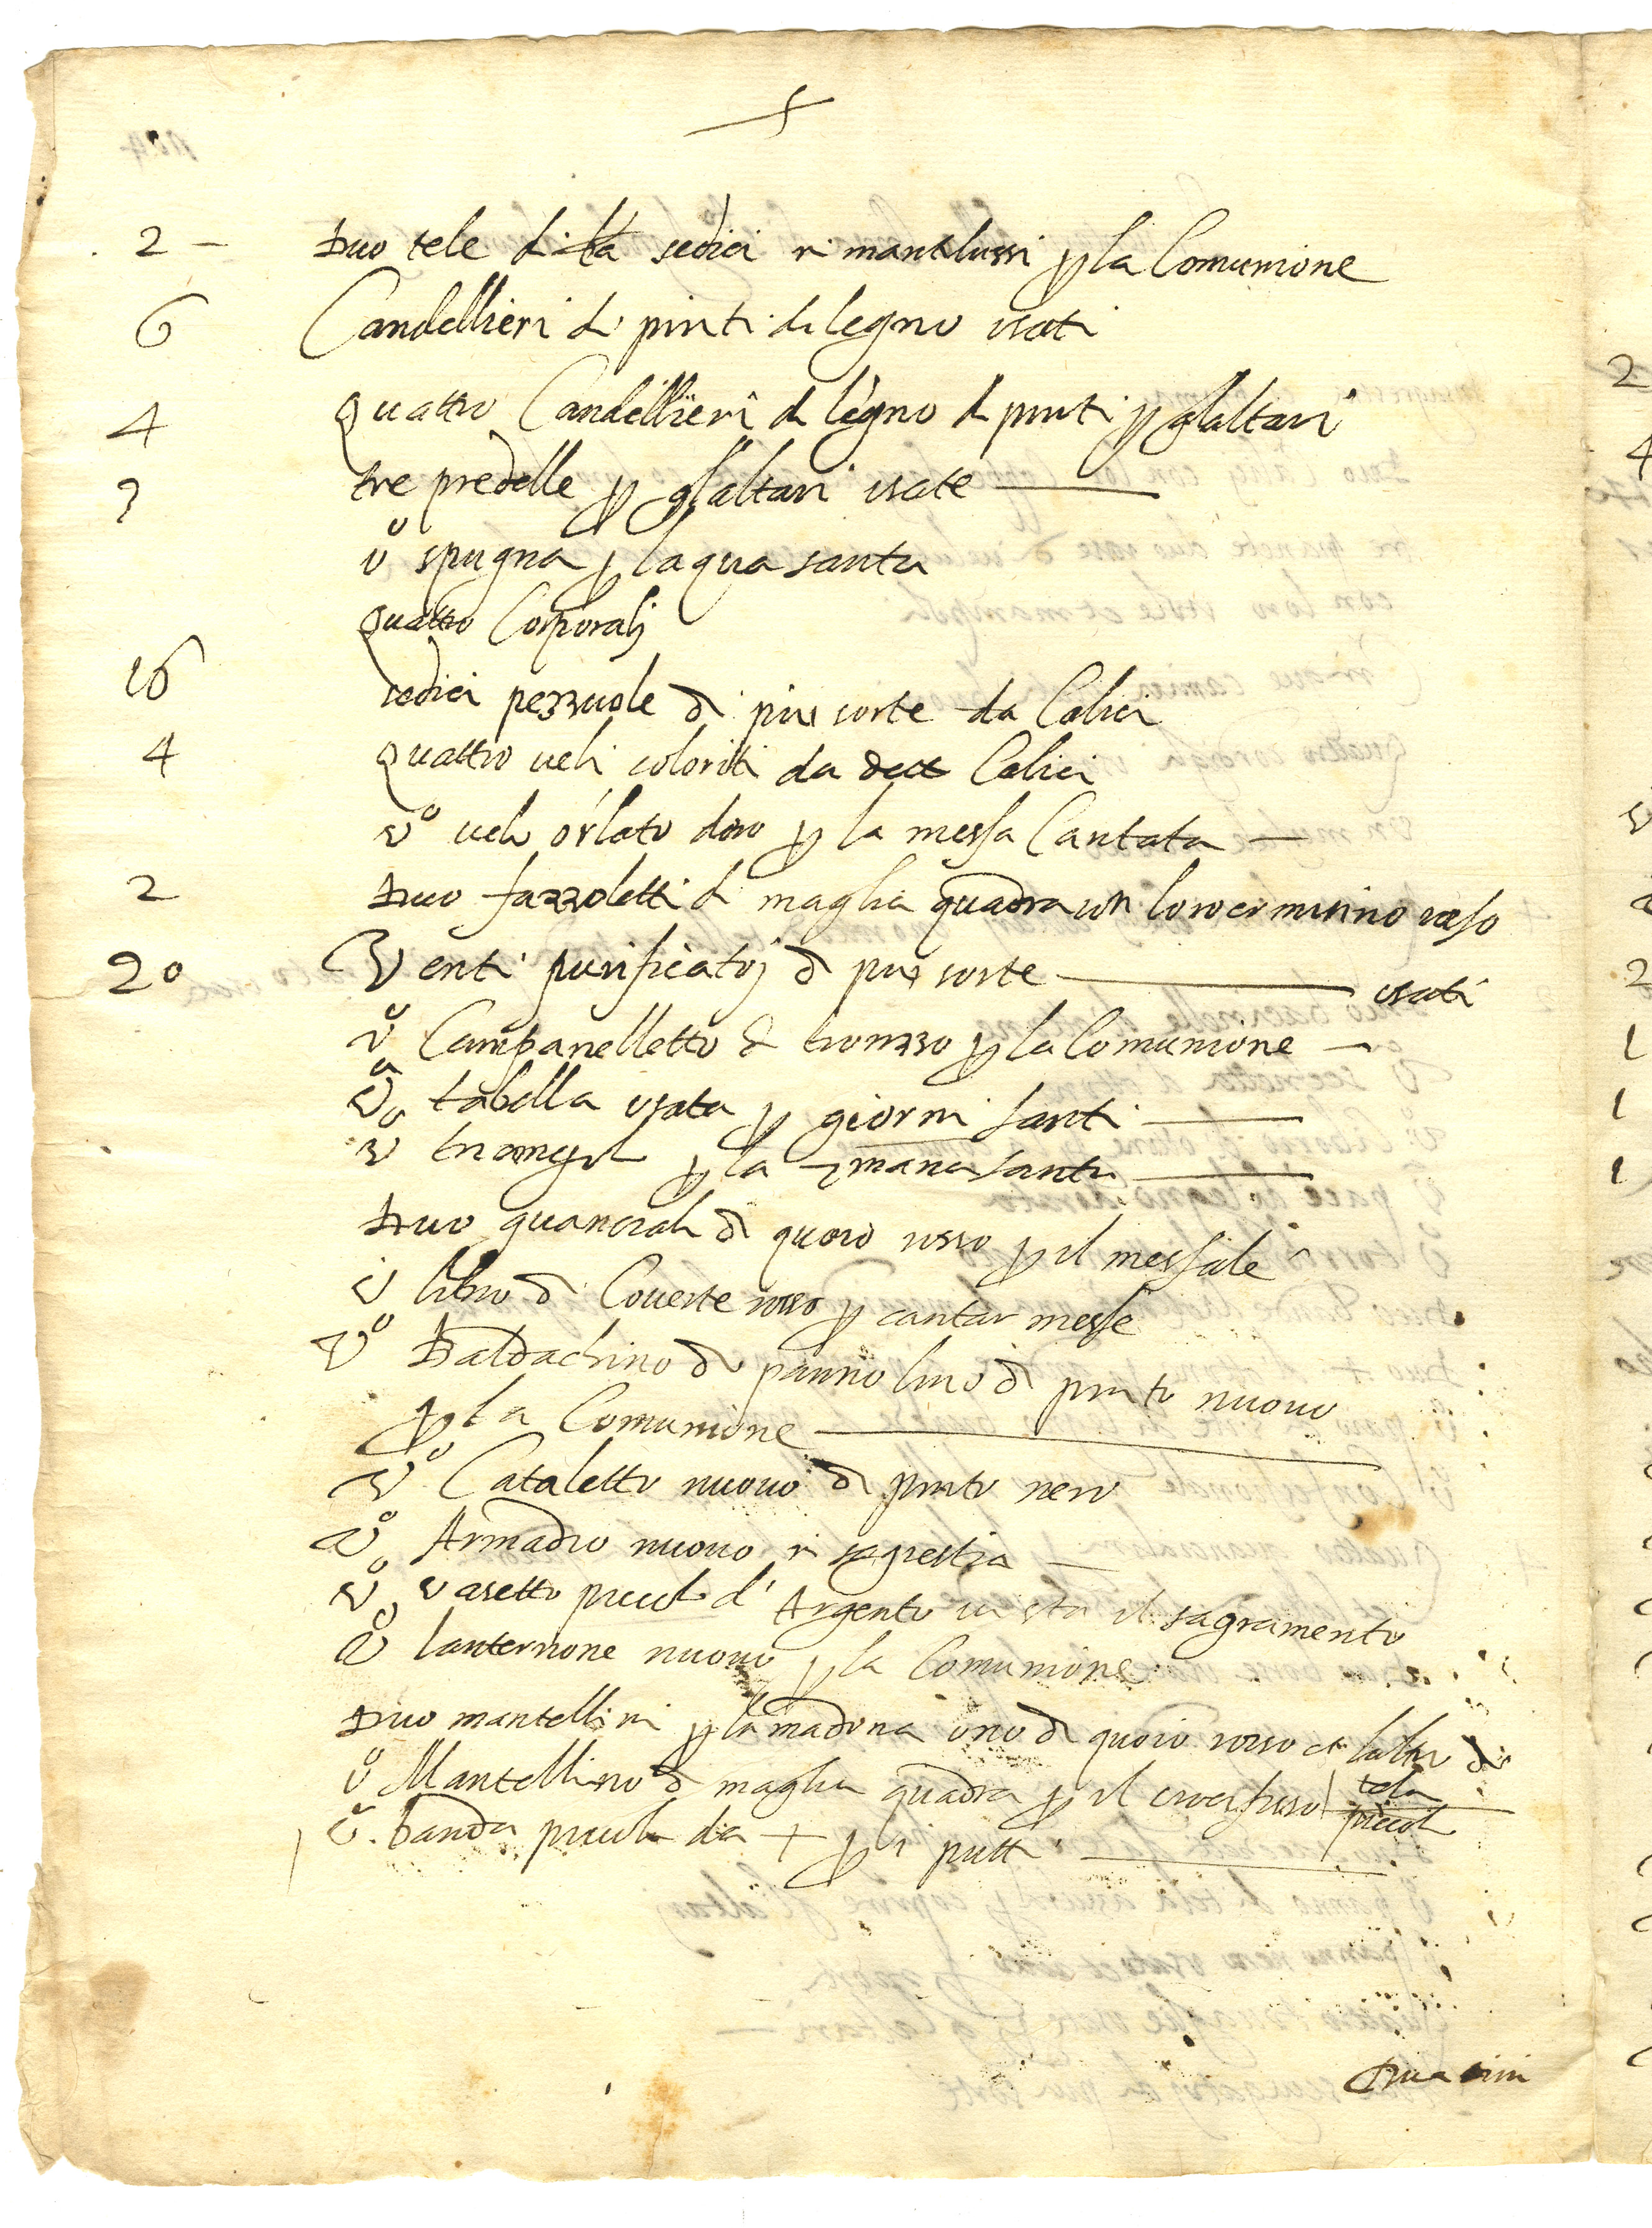 2 – Duo tele di sedici p la Comunione
6 Candellieri di pinti di legno usati
4 Quattro Candellieri di legno di pinti p glaltari
3 tre predelle p glaltari usate
uo spugna p laqua santa
Quattro Corporali
16 sedici pezzuole di piu sorte da Calici
4 Quattro ueli coloriti da Calici
uo uelo orlato doro p la messa Cantata
2 Duo fazzoletti di maglia quadra con loro
20 Venti purificatoj di piu sorte usati
uo Campanelletto di bronzzo p la Comunione
ua tabella usata p giorni santi
uo triangol p la 7mana santa
Duo guancrali di quoio rosso p il messale
uo libro di Couerte rosso p cantar messe
uo Baldachino di panno lino di pinto nuouo
p la Comunione
uo Cataletto nuouo di pinto nero
uo Armadio nuouo in sagrestia
uo uasetto piccol d'Argento sta il sagramento
uo lanternone nuouo p la Comunione
Duo mantellini p la madona uno di quoio rosso et laltro di
tela
uo Mantellino di maglia quadra p il crocifisso piccol
ua banda piccola da + p i putti